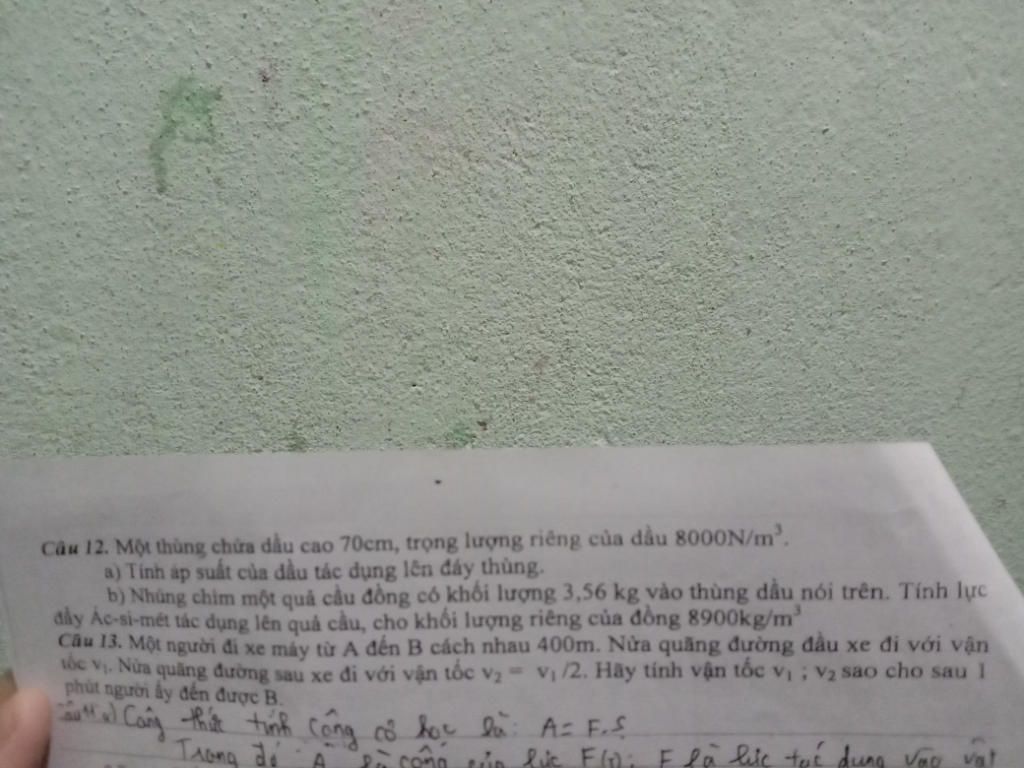 Câu 12. Một thùng chứa dầu cao 70cm, trọng lượng riêng của dầu 8000N/m³.
a) Tính áp suất của dầu tác dụng lên đáy thùng.
b) Nhúng chìm một quả cầu đồng có khối lượng 3,56 kg vào thùng dầu nói trên. Tính lực
đẩy Ác-si-mét tác dụng lên quả cầu, cho khối lượng riêng của đồng 8900kg/m³
Câu 13. Một người đi xe máy từ A đến B cách nhau 400m. Nửa quãng đường đầu xe đi với vận
tốc v₁. Nửa quãng đường sau xe đi với vận tốc v₂ = v₁/2. Hãy tính vận tốc v₁ ; v₂ sao cho sau 1
phút người ấy đến được B.
Câu 11 a) Công thức tính công cơ học là: A = F.S
Trong đó A là công của lực F(J); F là lực tác dụng vào vật